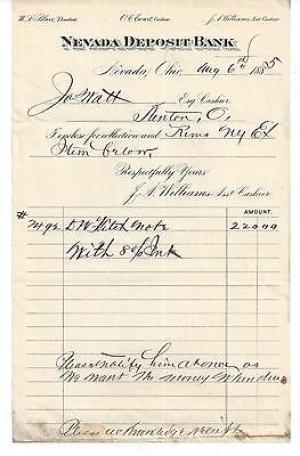 President. Cashier J. A. Williams, Asst Cashier
NEVADA DEPOSIT BANK
Nevada, Ohio, Aug 6th 1885
Jo Watt Esq Cashier
O,
I enclose for collection and Rems Ny Ex
Item below.
Respectfully Yours
J. A. Williams Asst Cashier
AMOUNT.
# 7492 D W Fitch Note 220 00
With 8 % Int
Please notify him at once as
We want the money when due
Please acknowledge receipt